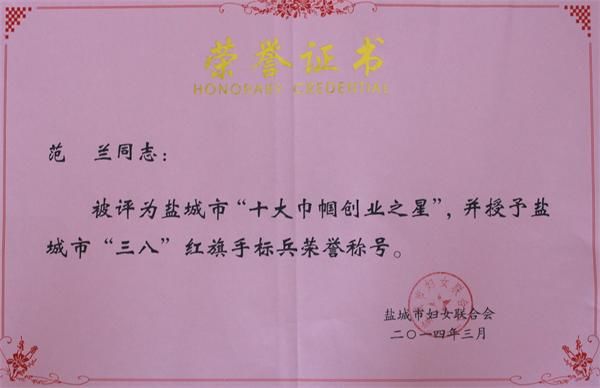 荣誉证书
HONORARY CREDENTIAL
范 兰同志：
被评为盐城市“十大巾帼创业之星”，并授予盐
城市“三八”红旗手标兵荣誉称号。
盐城市妇女联合会
二〇一四年三月